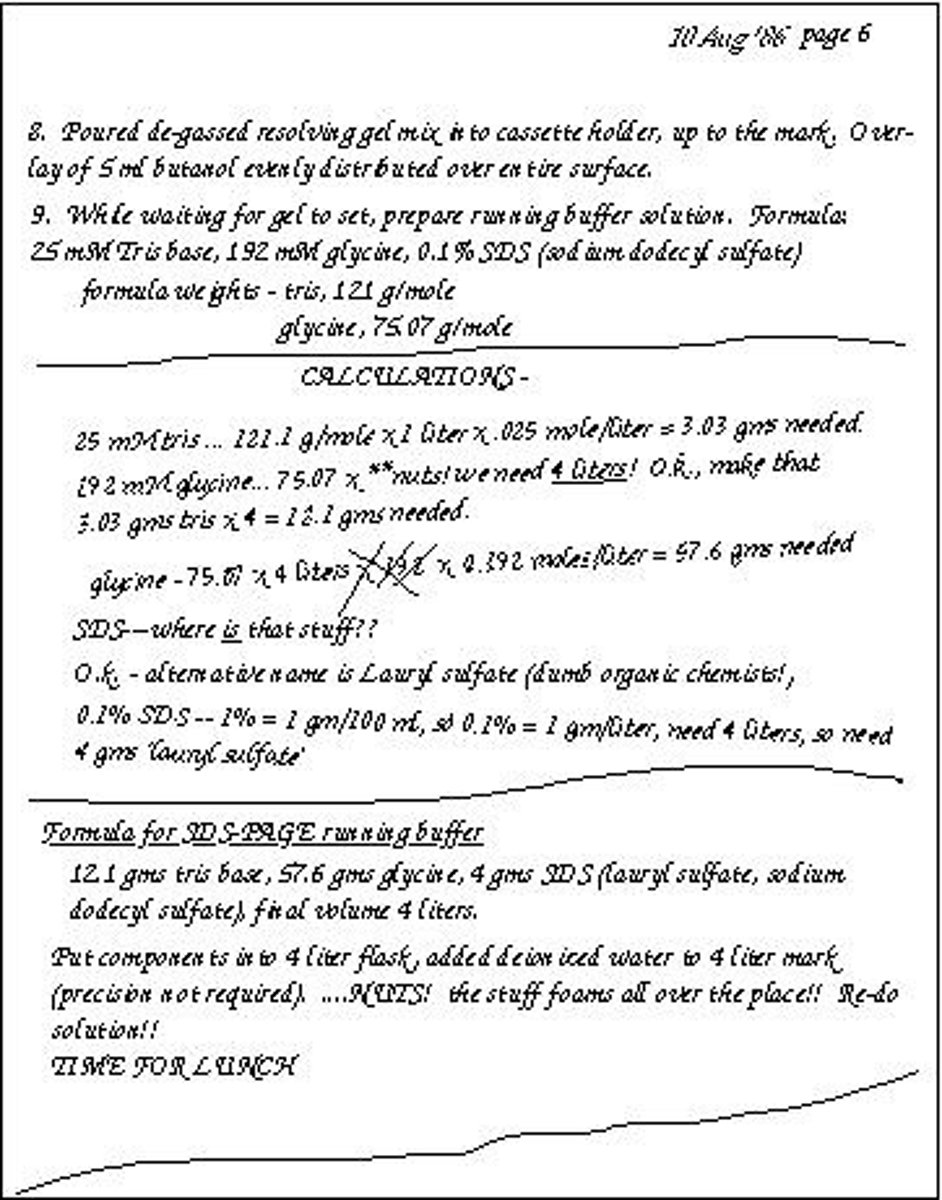 10 Aug '86 page 6
8. Poured de-gassed resolving gel mix into cassette holder, up to the mark. Over-
lay of 5 ml butanol evenly distributed over entire surface.
9. While waiting for gel to set, prepare running buffer solution. Formula:
25 mM Tris base, 192 mM glycine, 0.1% SDS (sodium dodecyl sulfate)
formula weights - tris, 121 g/mole
glycine, 75.07 g/mole
CALCULATIONS -
25 mM tris ... 121.1 g/mole x 1 liter x .025 mole/liter = 3.03 gms needed.
192 mM glycine... 75.07 x **nuts! we need 4 liters! O.k., make that
3.03 gms tris x 4 = 12.1 gms needed.
glycine - 75.07 x 4 liters x 192 x 0.192 moles/liter = 57.6 gms needed
SDS---where is that stuff??
O.k. - alternative name is Lauryl sulfate (dumb organic chemists!)
0.1% SDS -- 1% = 1 gm/100 ml, so 0.1% = 1 gm/liter, need 4 liters, so need
4 gms 'lauryl sulfate'
Formula for SDS-PAGE running buffer
12.1 gms tris base, 57.6 gms glycine, 4 gms SDS (lauryl sulfate, sodium
dodecyl sulfate), final volume 4 liters.
Put components into 4 liter flask, added deionized water to 4 liter mark
(precision not required). ....NUTS! the stuff foams all over the place!! Re-do
solution!!
TIME FOR LUNCH